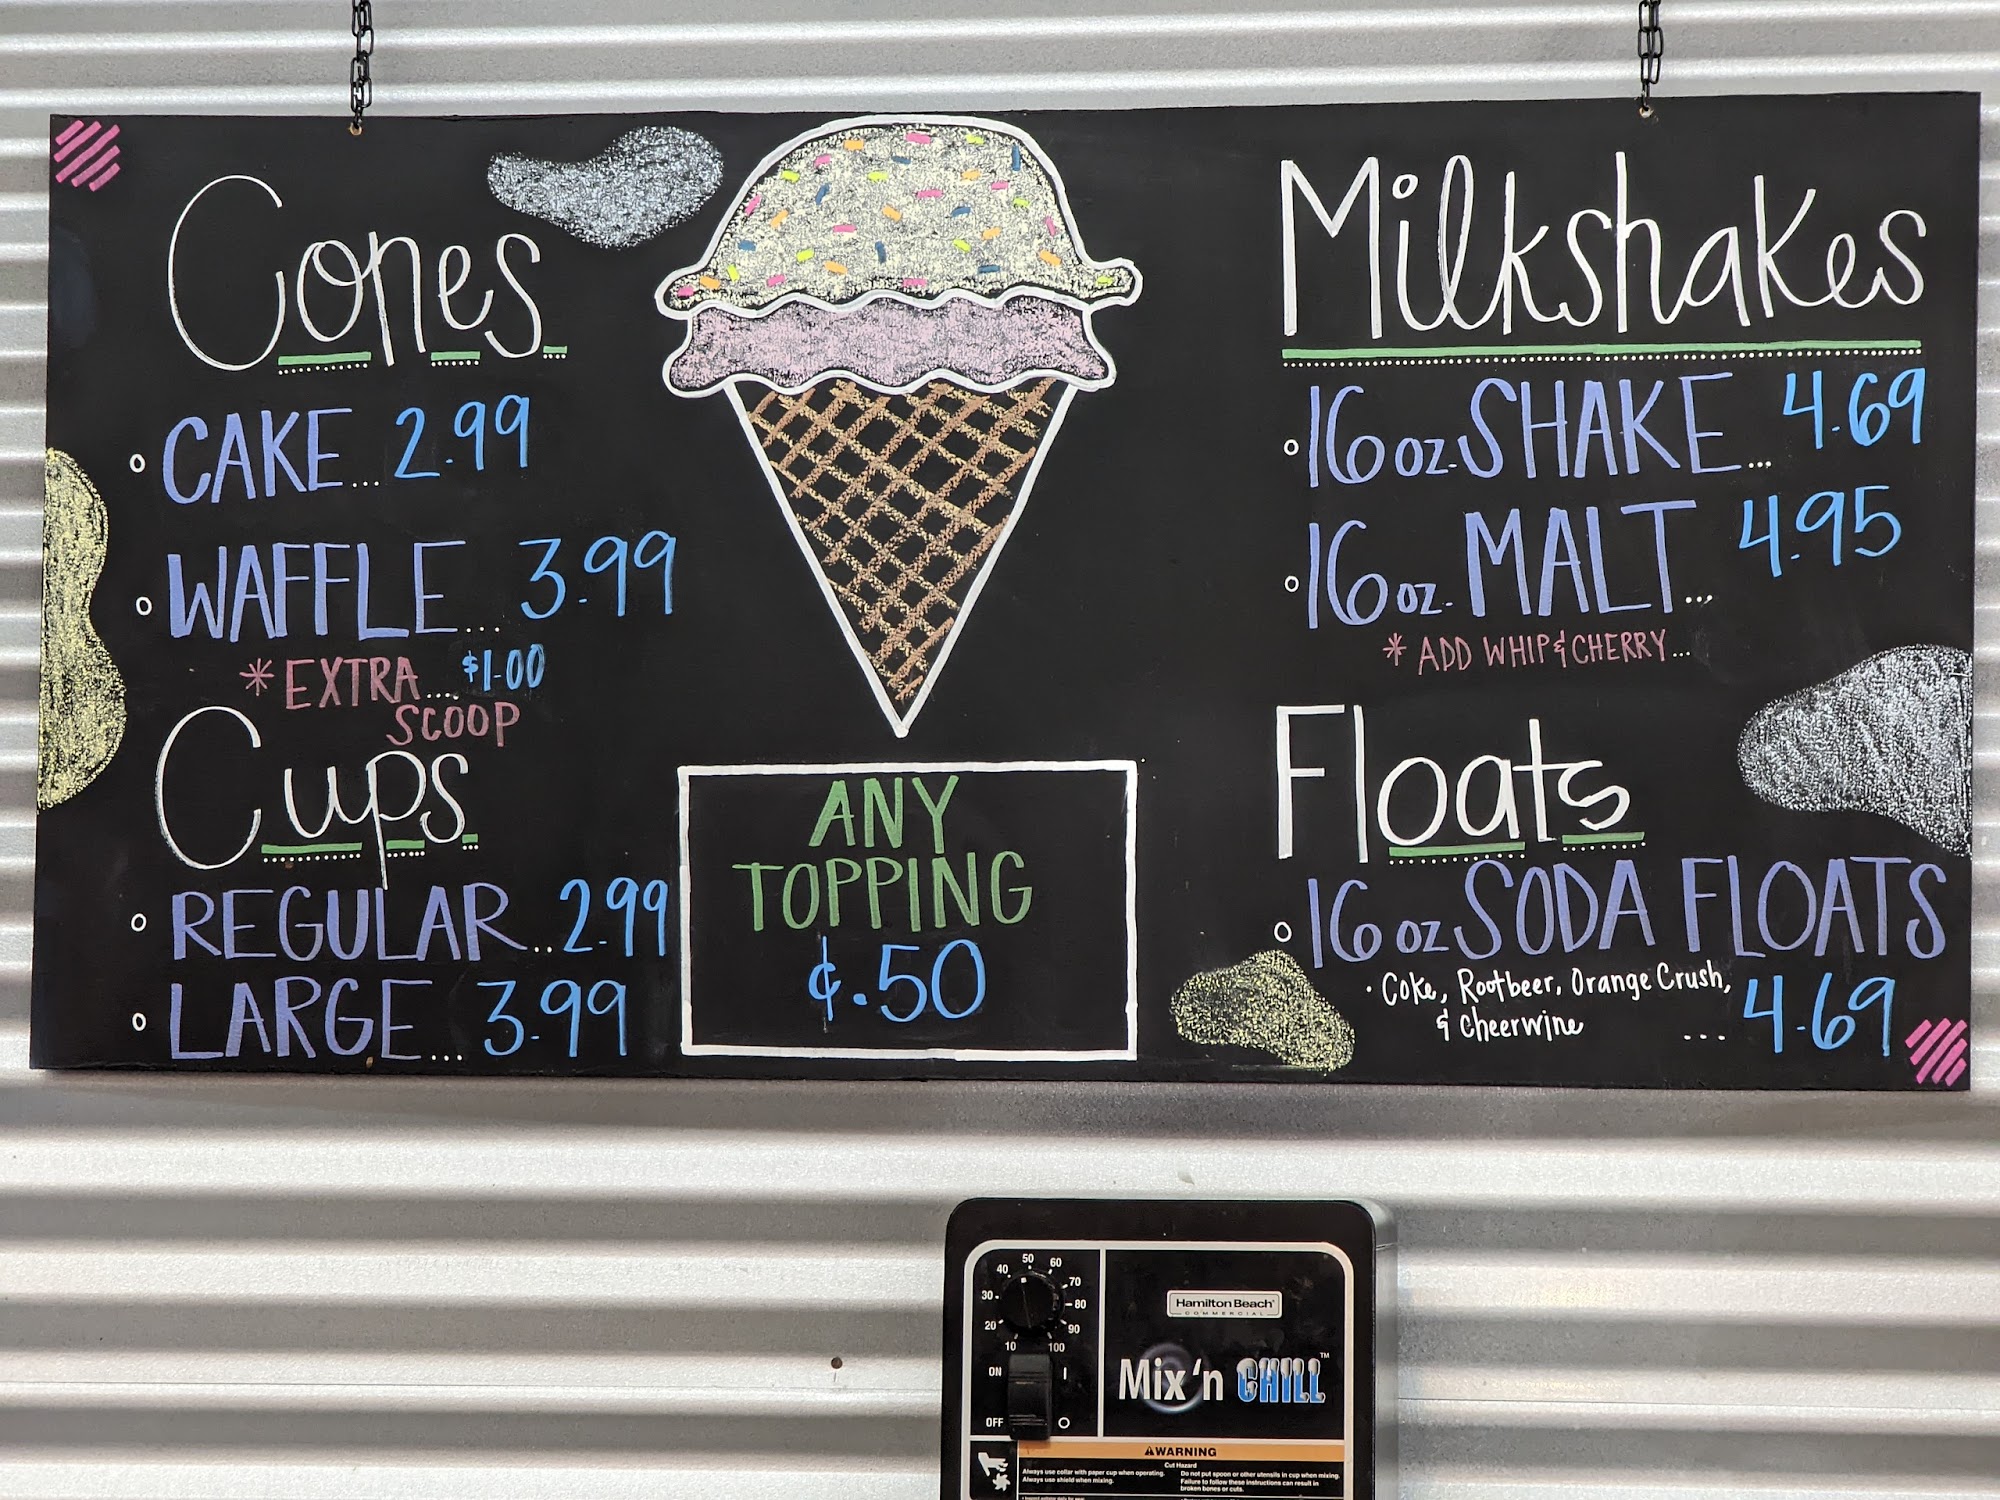 Cones
CAKE... 2.99
WAFFLE... 3.99
* EXTRA... $1.00
SCOOP
Cups
REGULAR... 2.99
LARGE... 3.99
ANY
TOPPING
¢.50
Milkshakes
16 oz. SHAKE... 4.69
16 oz. MALT... 4.95
* ADD WHIP & CHERRY...
Floats
16 oz SODA FLOATS
• Coke, Rootbeer, Orange Crush,
& Cheerwine
... 4.69
10 20 30 40 50 60 70 80 90 100
ON I
OFF O
Hamilton Beach
COMMERCIAL
Mix 'n CHILL™
WARNING
Cut Hazard
Always use collar with paper cup when operating.
Always use shield when mixing.
Do not put spoon or other utensils in cup when mixing.
Failure to follow these instructions can result in
broken bones or cuts.